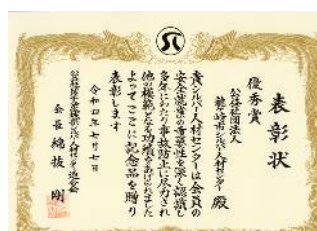 表彰状
優秀賞
公益社団法人
龍ケ崎市シルバー人材センター 殿
貴シルバー人材センターは会員の
安全就業の重要性を深く認識し
多年にわたり事故防止に尽力され
他の模範となる功績をあげられました
よってここに記念品を贈り
表彰します
令和四年七月七日
会長 絹抜 剛